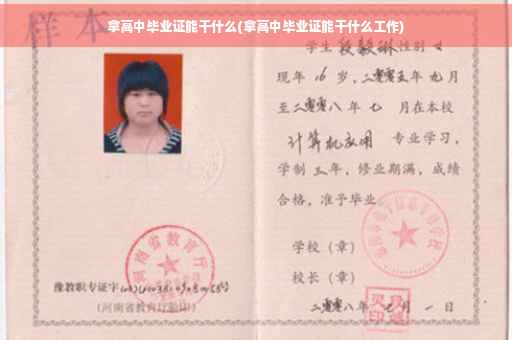 拿高中毕业证能干什么(拿高中毕业证能干什么工作)
样本
学生 段毅琳 性别 女
现年 16 岁，二零零五年 九 月
至二零零八年 七 月在本校
计算机应用 专业学习，
学制 三 年，修业期满，成绩
合格，准予毕业。
学校（章）
校长（章）
二零零八年 七 月 一 日
河南省教育厅
豫教职专证字
(河南省教育厅验印)